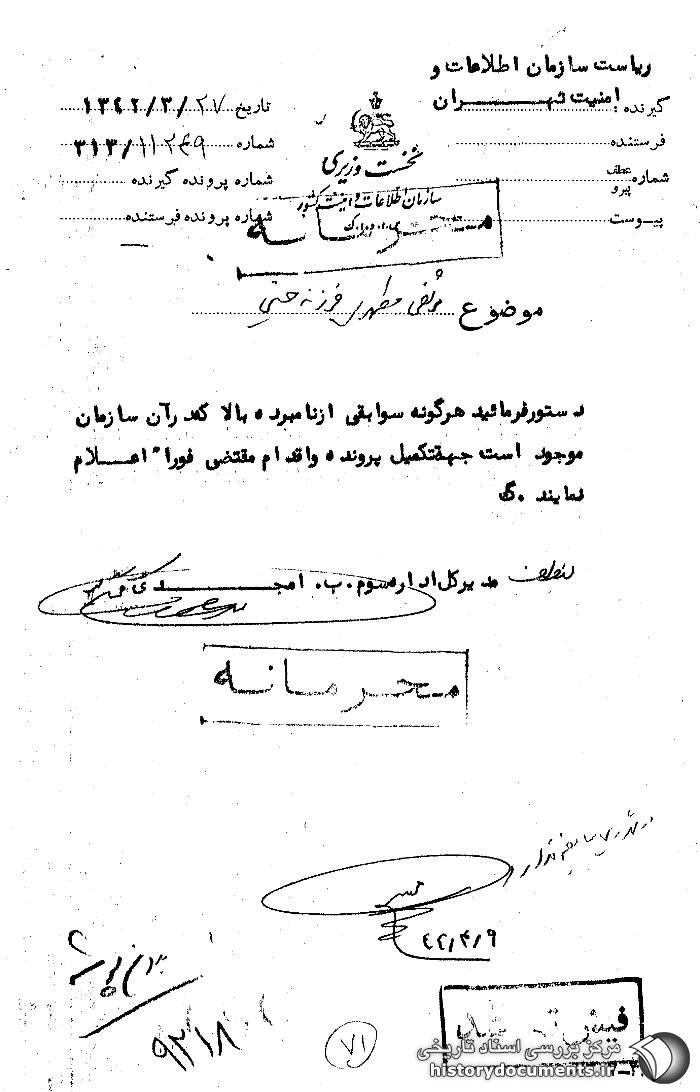 ریاست سازمان اطلاعات و
گیرنده: امنیت تهران
تاریخ ۱۳۴۲/۳/۲۷
فرستنده
شماره ۳۱۳/۱۱۲۴۹
شماره عطف پیرو
شماره پرونده گیرنده
پیوست
شماره پرونده فرستنده
نخست وزیری
سازمان اطلاعات و امنیت کشور
س.ا.و.ا.ک
محرمانه
موضوع مرتضی مطهری فرزند
دستور فرمائید هرگونه سوابقی از نامبرده بالا که در آن سازمان
موجود است جهة تکمیل پرونده و اقدام مقتضی فوراً اعلام
نمایند. گ
مدیرکل اداره سوم. ب. امجدی
محرمانه
۴۲/۴/۹
بدون
۹۲۱۸
۷۱
مرکز بررسی اسناد تاریخی
historydocuments.ir